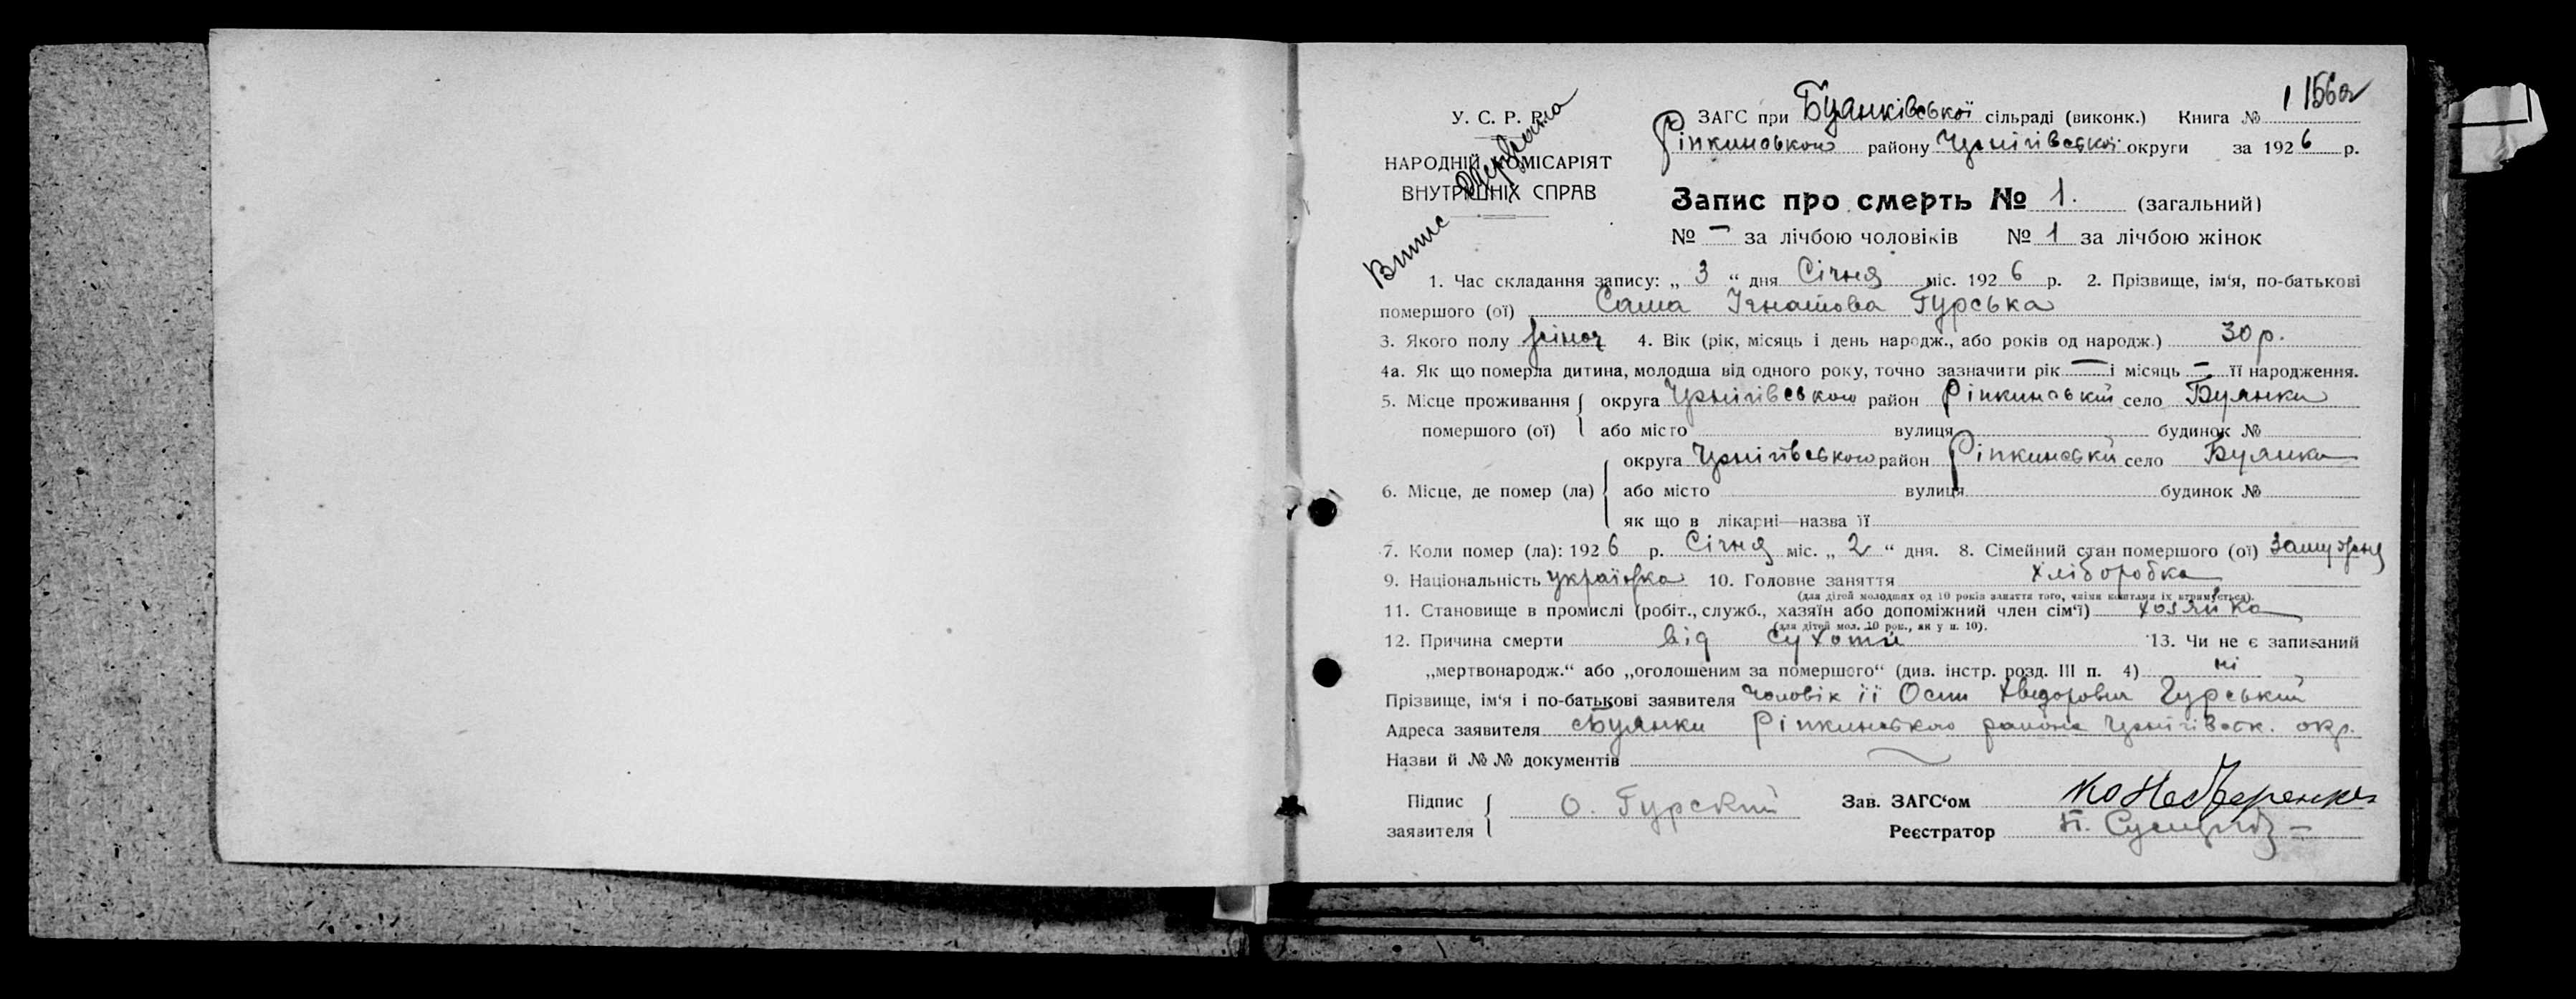 1 156
У. С. Р. Р.
ЗАГС при Буянківської сільраді (виконк.) Книга №
Ріпкинського району Чернігівської округи за 1926 р.
НАРОДНІЙ КОМІСАРІЯТ
ВНУТРІШНІХ СПРАВ
Запис про смерть № 1. (загальний)
№ — за лічбою чоловіків № 1 за лічбою жінок
Випис
1. Час складання запису: „ 3 “ дня Січня міс. 1926 р. 2. Прізвище, ім‘я, по-батькові
помершого (ої) Саша Ігнатова Гурська
3. Якого полу жіноч 4. Вік (рік, місяць і день народж., або років од народж.) 30 р.
4а. Як що померла дитина, молодша від одного року, точно зазначити рік — і місяць — її народження.
5. Місце проживання округа Чернігівського район Ріпкинський село Буянки
помершого (ої) або місто вулиця будинок №
округа Чернігівського район Ріпкинський село Буянки
6. Місце, де помер (ла) або місто вулиця будинок №
як що в лікарні—назва її
7. Коли помер (ла): 1926 р. Січня міс. „ 2 “ дня. 8. Сімейний стан помершого (ої) Замужня
9. Національність українка 10. Головне заняття хліборобка
(для дітей молодших од 10 років заняття того, чиїми коштами їх утримується).
11. Становище в промислі (робіт., служб., хазяїн або допоміжний член сім‘ї) хозяйка
(для дітей мол. 10 рок., як у п. 10).
12. Причина смерти від сухоти 13. Чи не є записаний
„мертвонародж.“ або „оголошеним за помершого“ (див. інстр. розд. III п. 4) ні
Прізвище, ім‘я і по-батькові заявителя чоловік її Осип Хведорович Гурський
Адреса заявителя с Буянки Ріпкинського района Чернігівськ. окр.
Назви й №№ документів
Підпис О. Гурский Зав. ЗАГС‘ом
заявителя Реєстратор